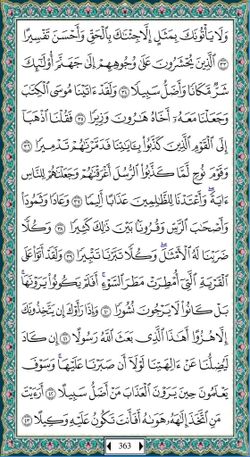 وَلَا يَأْتُونَكَ بِمَثَلٍ إِلَّا جِئْنَٰكَ بِٱلْحَقِّ وَأَحْسَنَ تَفْسِيرًا
٣٣ ٱلَّذِينَ يُحْشَرُونَ عَلَىٰ وُجُوهِهِمْ إِلَىٰ جَهَنَّمَ أُو۟لَٰٓئِكَ
شَرٌّ مَّكَانًا وَأَضَلُّ سَبِيلًا ٣٤ وَلَقَدْ ءَاتَيْنَا مُوسَى ٱلْكِتَٰبَ
وَجَعَلْنَا مَعَهُۥٓ أَخَاهُ هَٰرُونَ وَزِيرًا ٣٥ فَقُلْنَا ٱذْهَبَآ
إِلَى ٱلْقَوْمِ ٱلَّذِينَ كَذَّبُوا۟ بِـَٔايَٰتِنَا فَدَمَّرْنَٰهُمْ تَدْمِيرًا ٣٦
وَقَوْمَ نُوحٍ لَّمَّا كَذَّبُوا۟ ٱلرُّسُلَ أَغْرَقْنَٰهُمْ وَجَعَلْنَٰهُمْ لِلنَّاسِ
ءَايَةً ۖ وَأَعْتَدْنَا لِلظَّٰلِمِينَ عَذَابًا أَلِيمًا ٣٧ وَعَادًا وَثَمُودَا۟
وَأَصْحَٰبَ ٱلرَّسِّ وَقُرُونًۢا بَيْنَ ذَٰلِكَ كَثِيرًا ٣٨ وَكُلًّا
ضَرَبْنَا لَهُ ٱلْأَمْثَٰلَ ۖ وَكُلًّا تَبَّرْنَا تَتْبِيرًا ٣٩ وَلَقَدْ أَتَوْا۟ عَلَى
ٱلْقَرْيَةِ ٱلَّتِىٓ أُمْطِرَتْ مَطَرَ ٱلسَّوْءِ ۚ أَفَلَمْ يَكُونُوا۟ يَرَوْنَهَا ۚ
بَلْ كَانُوا۟ لَا يَرْجُونَ نُشُورًا ٤٠ وَإِذَا رَأَوْكَ إِن يَتَّخِذُونَكَ
إِلَّا هُزُوًا أَهَٰذَا ٱلَّذِى بَعَثَ ٱللَّهُ رَسُولًا ٤١ إِن كَادَ
لَيُضِلُّنَا عَنْ ءَالِهَتِنَا لَوْلَآ أَن صَبَرْنَا عَلَيْهَا ۚ وَسَوْفَ
يَعْلَمُونَ حِينَ يَرَوْنَ ٱلْعَذَابَ مَنْ أَضَلُّ سَبِيلًا ٤٢ أَرَءَيْتَ
مَنِ ٱتَّخَذَ إِلَٰهَهُۥ هَوَىٰهُ أَفَأَنتَ تَكُونُ عَلَيْهِ وَكِيلًا ٤٣
363